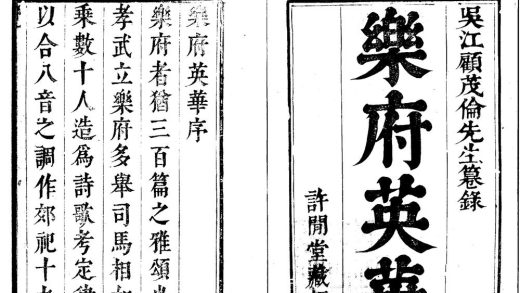 吳江顧茂倫先生纂錄
樂府英華
許閒堂藏
樂府英華序
樂府者猶三百篇之雅頌
孝武立樂府多舉司馬相
乘數十人造爲詩歌考定
以合八音之調作郊祀十